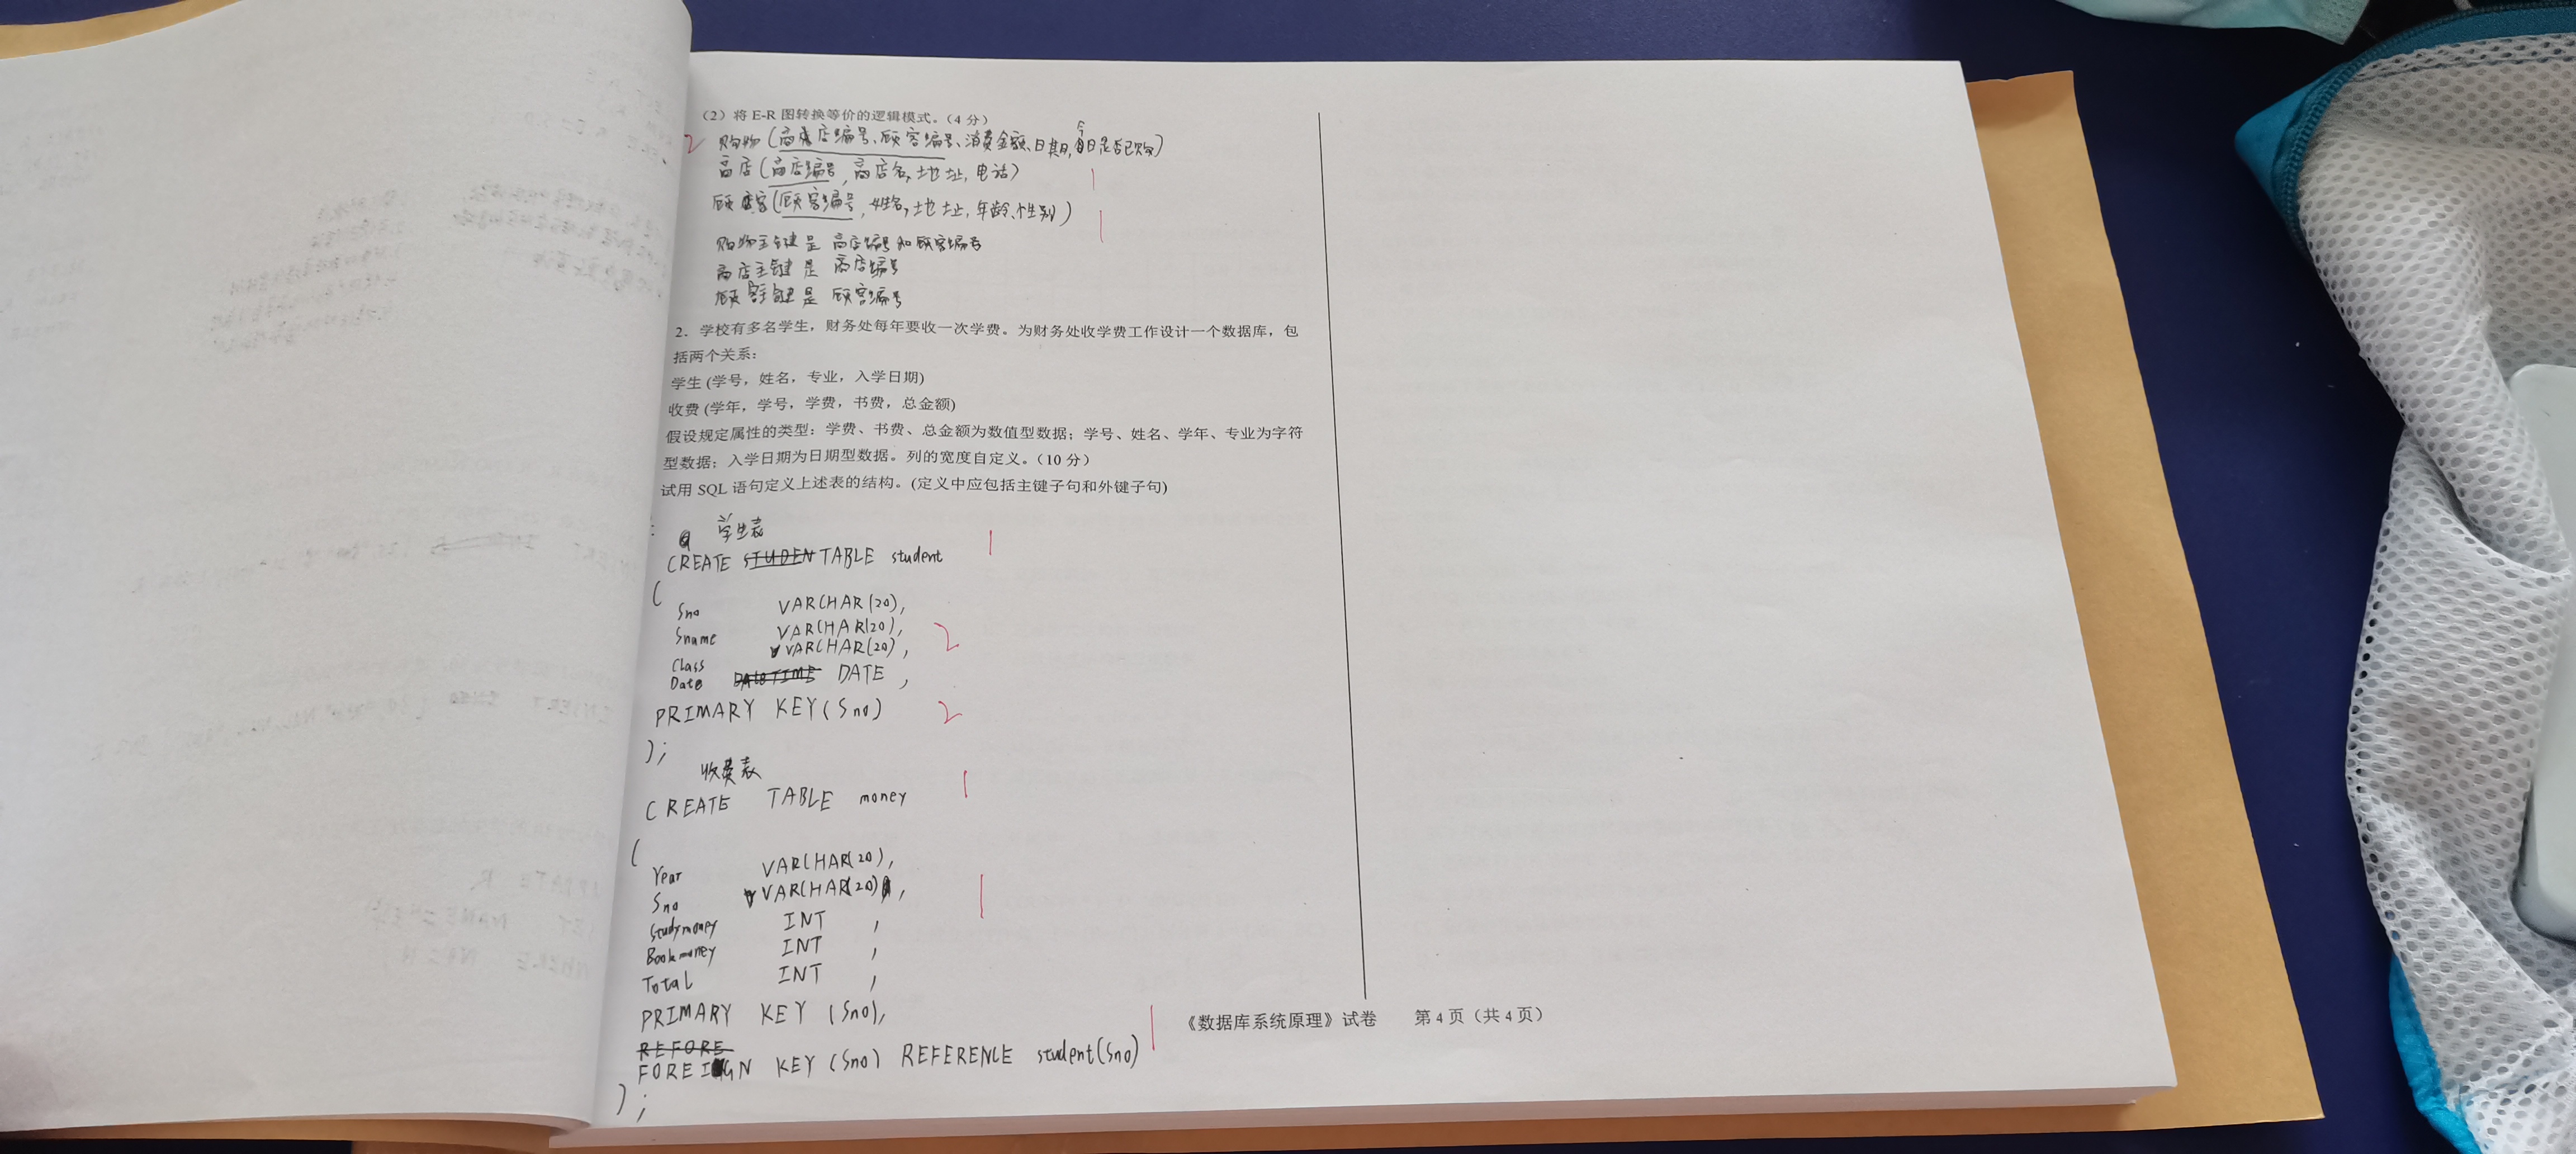 （2）将 E-R 图转换等价的逻辑模式。（4 分）
2
购物（商店编号、顾客编号、消费金额、日期，每日是否已购）
商店（商店编号，商店名，地址，电话）
顾客（顾客编号，姓名，地址，年龄、性别）
购物主键是 商店编号和顾客编号
商店主键是 商店编号
顾客主键是 顾客编号
2. 学校有多名学生，财务处每年要收一次学费。为财务处收学费工作设计一个数据库，包
括两个关系：
学生 (学号，姓名，专业，入学日期)
收费 (学年，学号，学费，书费，总金额)
假设规定属性的类型：学费、书费、总金额为数值型数据；学号、姓名、学年、专业为字符
型数据；入学日期为日期型数据。列的宽度自定义。（10 分）
试用 SQL 语句定义上述表的结构。(定义中应包括主键子句和外键子句)
学生表
CREATE STUDEN TABLE student 1
(
Sno VARCHAR(20),
Sname VARCHAR(20), 2
Class VARCHAR(20),
Date DATETIME DATE,
PRIMARY KEY(Sno) 2
);
收费表
CREATE TABLE money 1
(
Year VARCHAR(20),
Sno VARCHAR(20), 1
Studymoney INT ,
Bookmoney INT ,
Total INT ,
PRIMARY KEY (Sno),
REFORE
FOREIGN KEY (Sno) REFERENCE student(Sno) 1
);
《数据库系统原理》试卷 第 4 页（共 4 页）